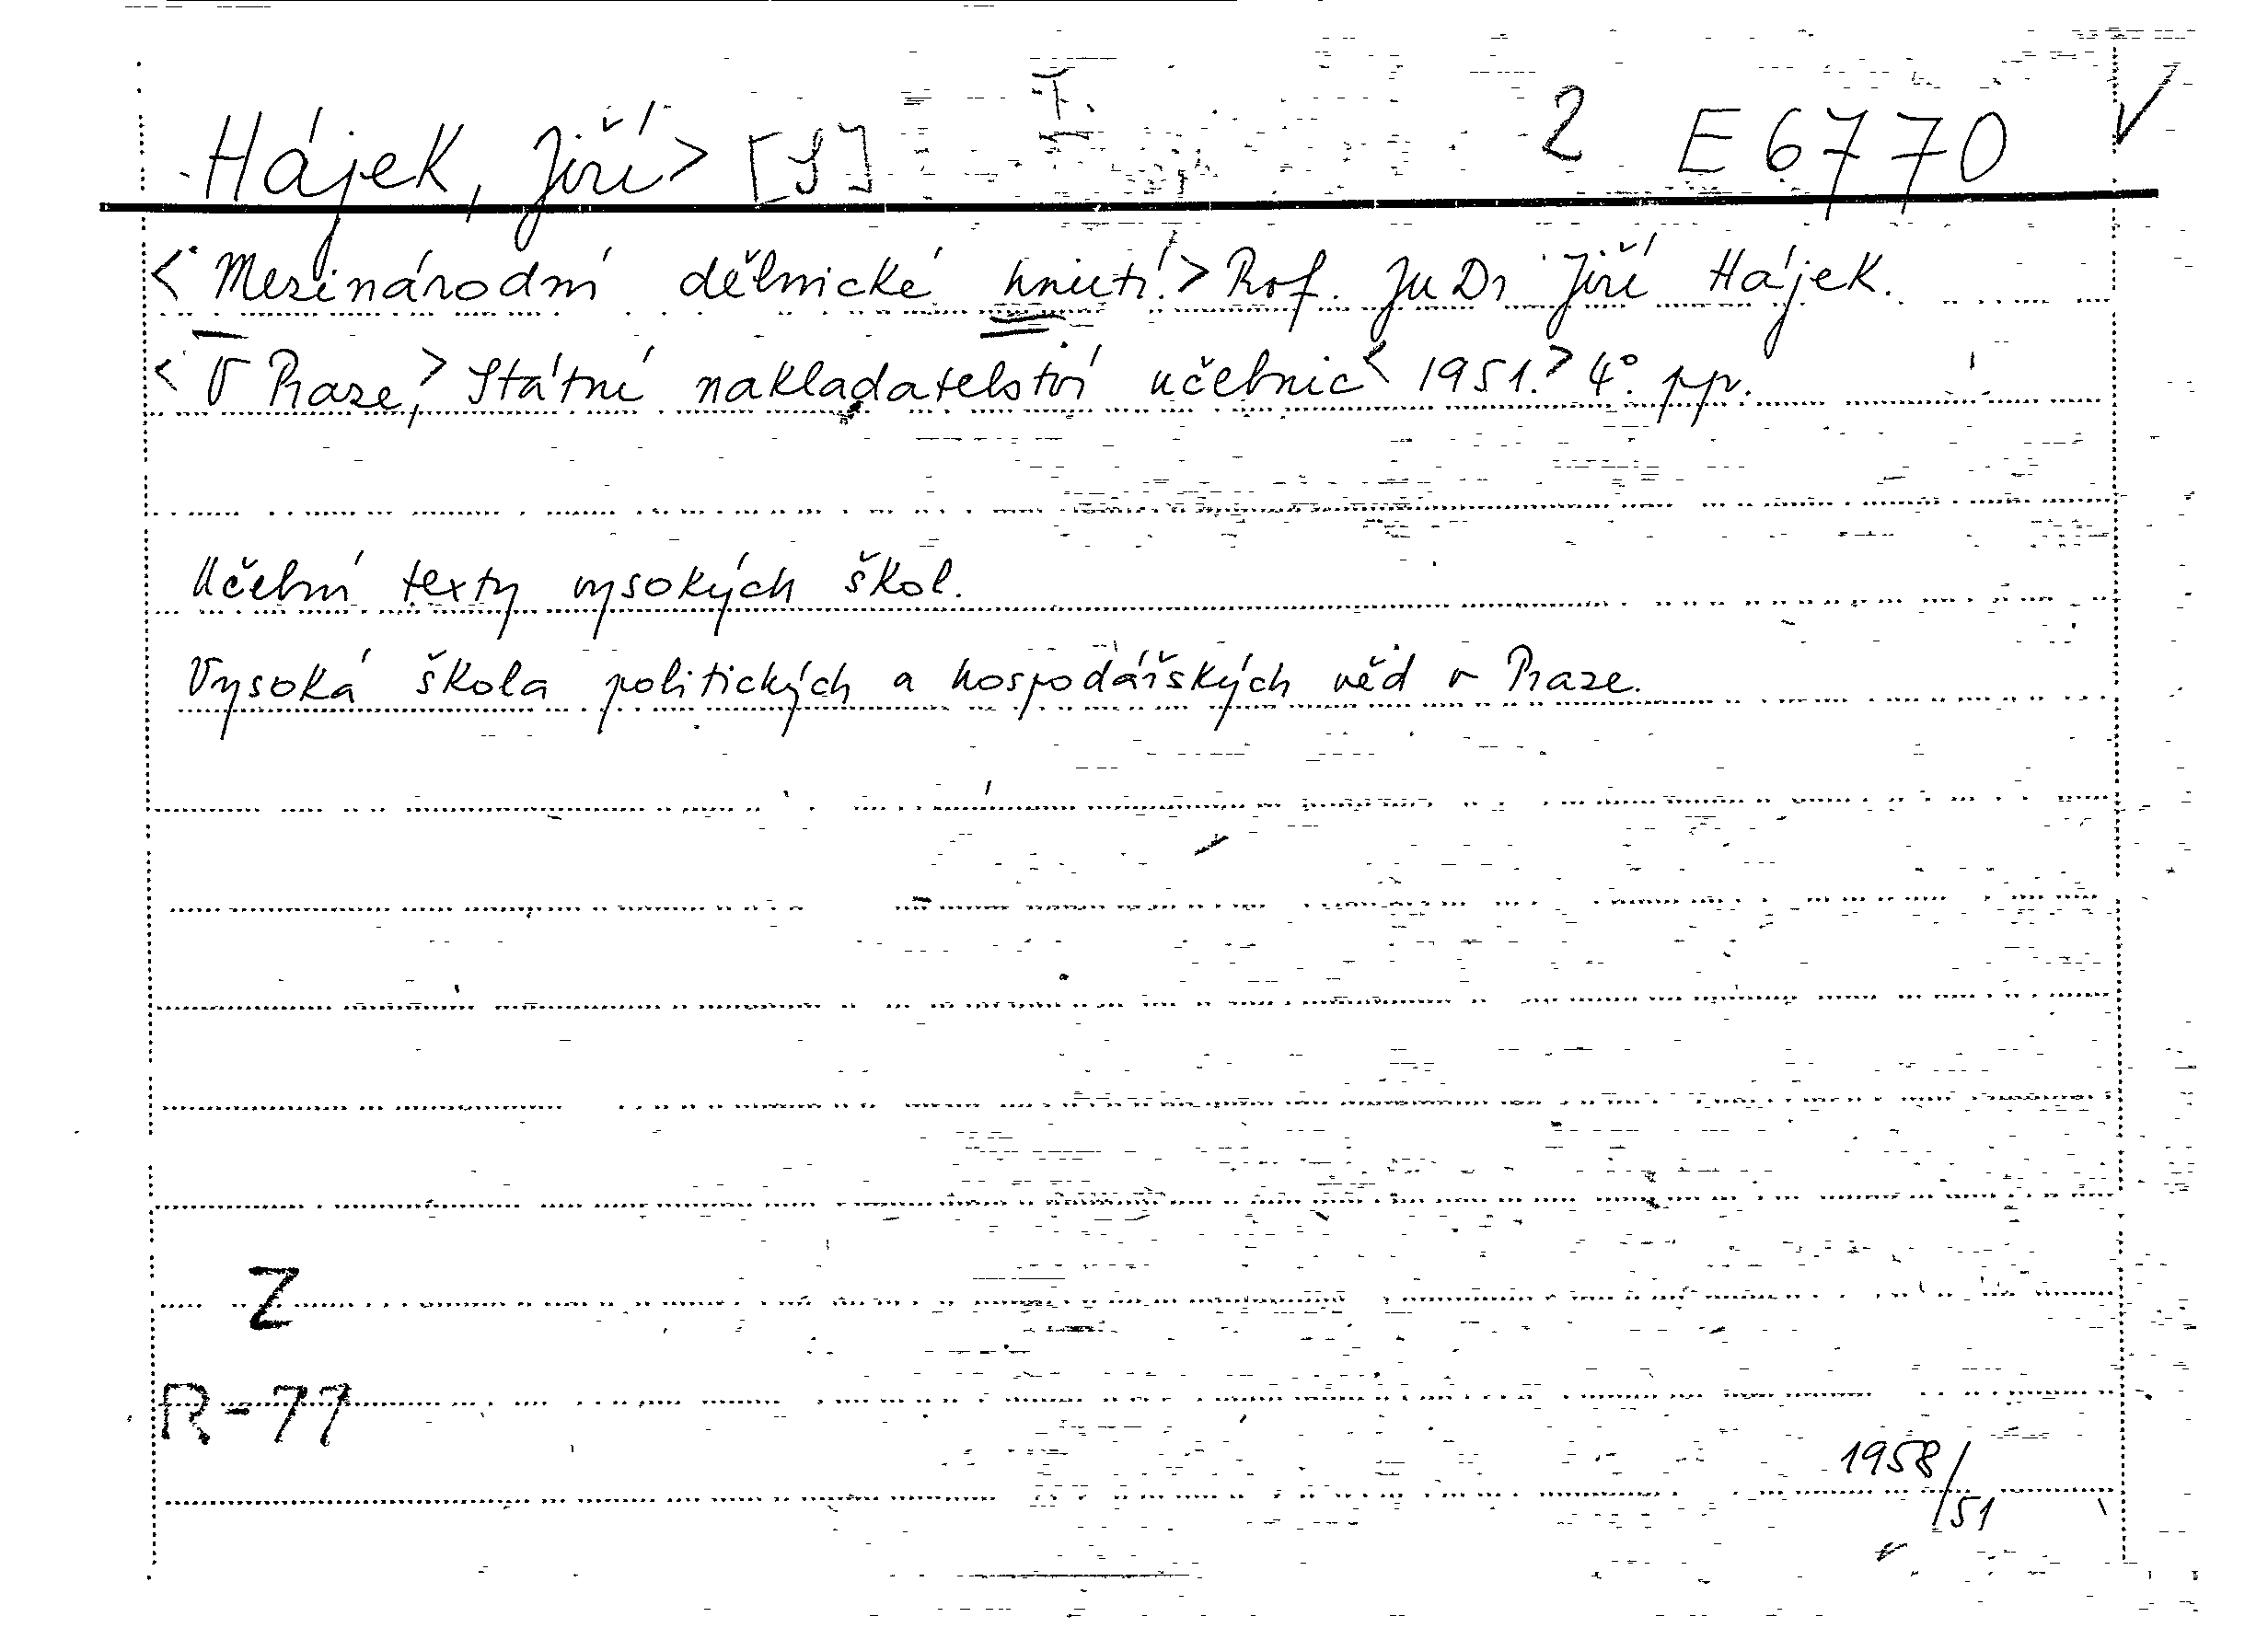 Hájek, Jiří> [S] I. 2 E 6770
<Mezinárodní dělnické hnutí.> Prof. JuDr Jiří Hájek.
<V Praze,> Státní nakladatelství učebnic< 1951.> 4°. pp.
Učební texty vysokých škol.
Vysoká škola politických a hospodářských věd v Praze.
Z
R-77
1958/51